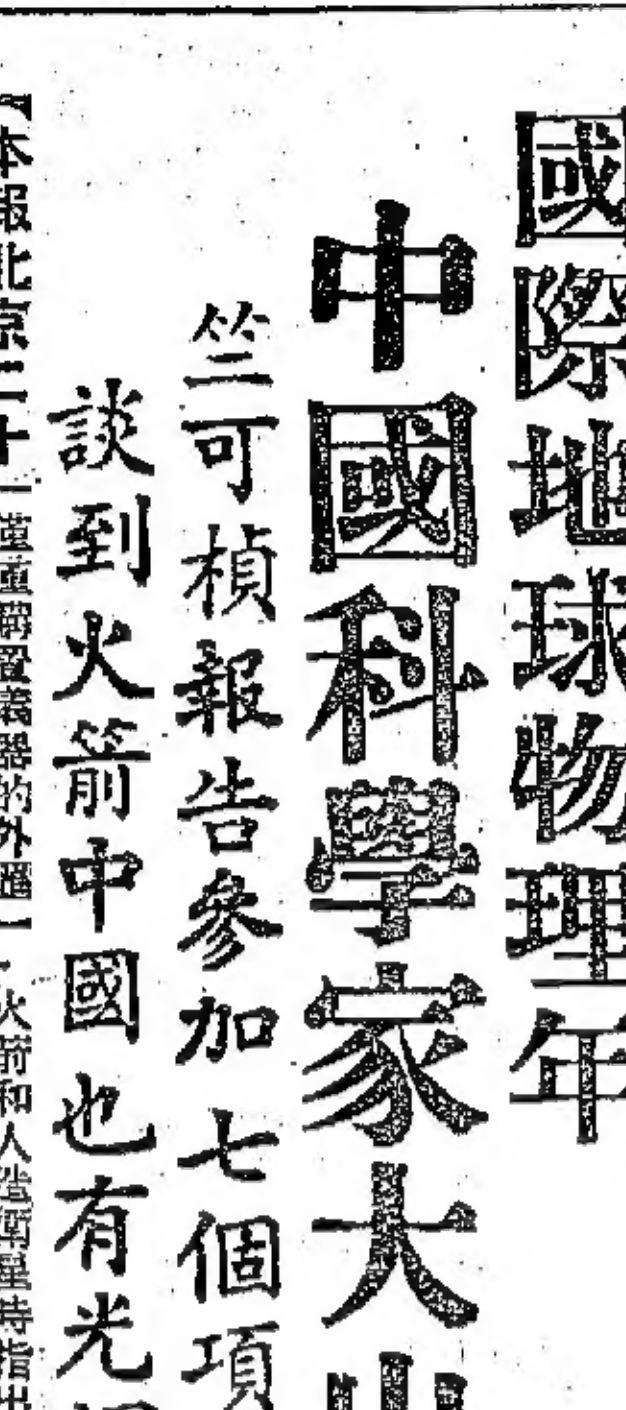 國際地球物理年
中國科學家大
竺可楨報告參加七個項
談到火箭中國也有光
【本報北京二十
購置儀器的外匯】
火箭和人造衛星時指出